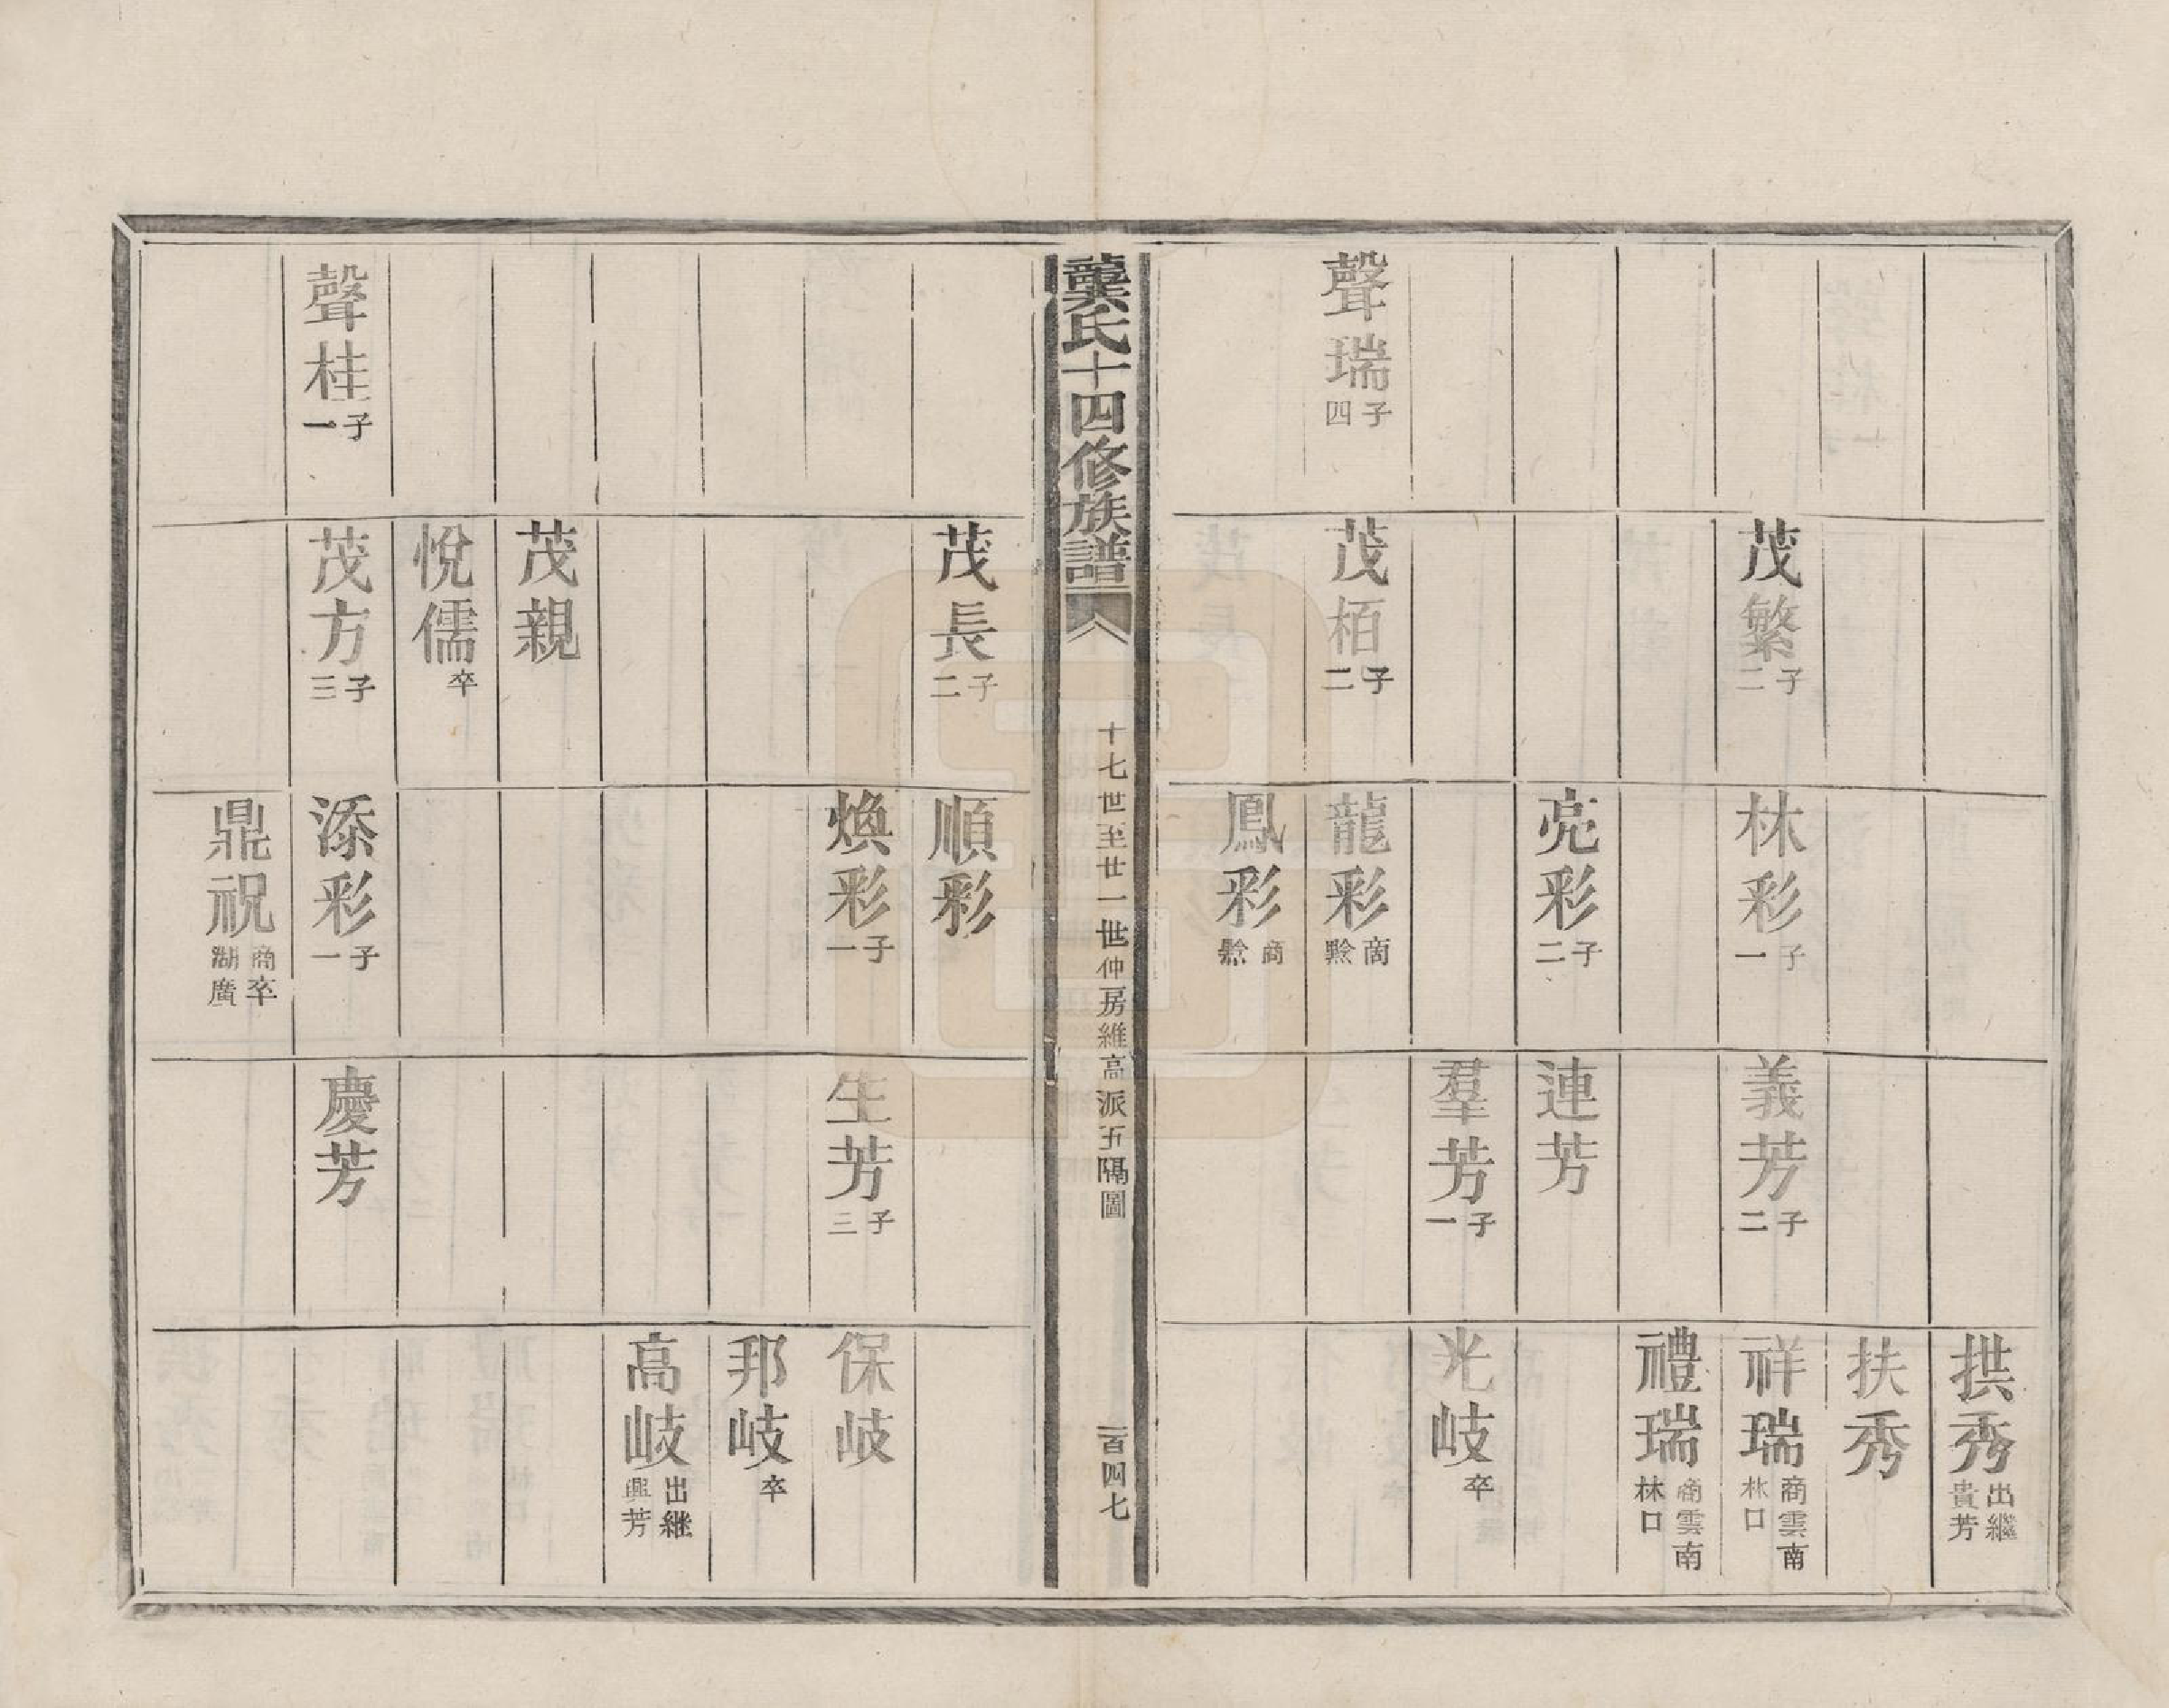 拱秀 出繼貴芳
扶秀
茂繁 子二
林彩 子一
義芳 子二
祥瑞 商雲南林口
禮瑞 商雲南林口
亮彩 子二
連芳
羣芳 子一
光岐 卒
聲瑞 子四
茂栢 子二
龍彩 商黔
鳳彩 商黔
龔氏十四修族譜
十七世至廿一世仲房維高派五隔圖
一百四七
茂長 子二
順彩
煥彩 子一
生芳 子三
保岐
邦岐 卒
高岐 出継興芳
茂親
悅儒 卒
聲桂 子一
茂方 子三
添彩 子一
慶芳
鼎祝 商卒湖廣